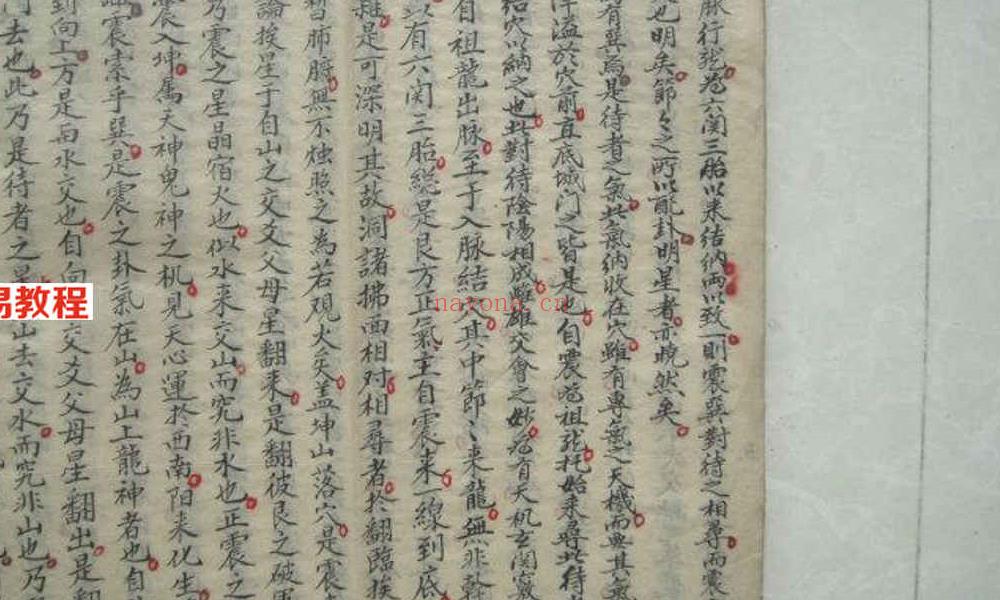 脉行發為六関三胎以来結納両以致一則震巽對待之相尋而震
也明矣節々之所以配卦明星者亦晓然矣
有巽為是待者之氣此氣納收在穴雖有專氣之天機而與其氣
洋溢於穴前直底城门之皆是也自震為祖發托始来尋此待
结穴以納之也此對待陰陽相成雌雄交會之妙為有天机玄関竅
自祖龍出脉至于入脉結穴其中節々来龍無非幹
以有六関三胎縂是艮方正氣主自震来一線到底
雜是可深明其故洞諸拂面相对相尋者於翻臨挨
皆肺腑無不烛照之為若观火矣盖坤山落穴是震
論挨星于自山之交爻父母星翻来是翻彼艮之破軍
乃震之星晶宿火也似水来交山而究非水也正震之
震入坤属天神鬼神之机見天心運於西南阳来化生
震索乎巽是震之卦氣在山為山上龍神者也自
到向上方是面水交也自向 交爻父母星翻出是翻
去也此乃是待者之星 山去交水而究非山也乃
易教程
nayona.cn